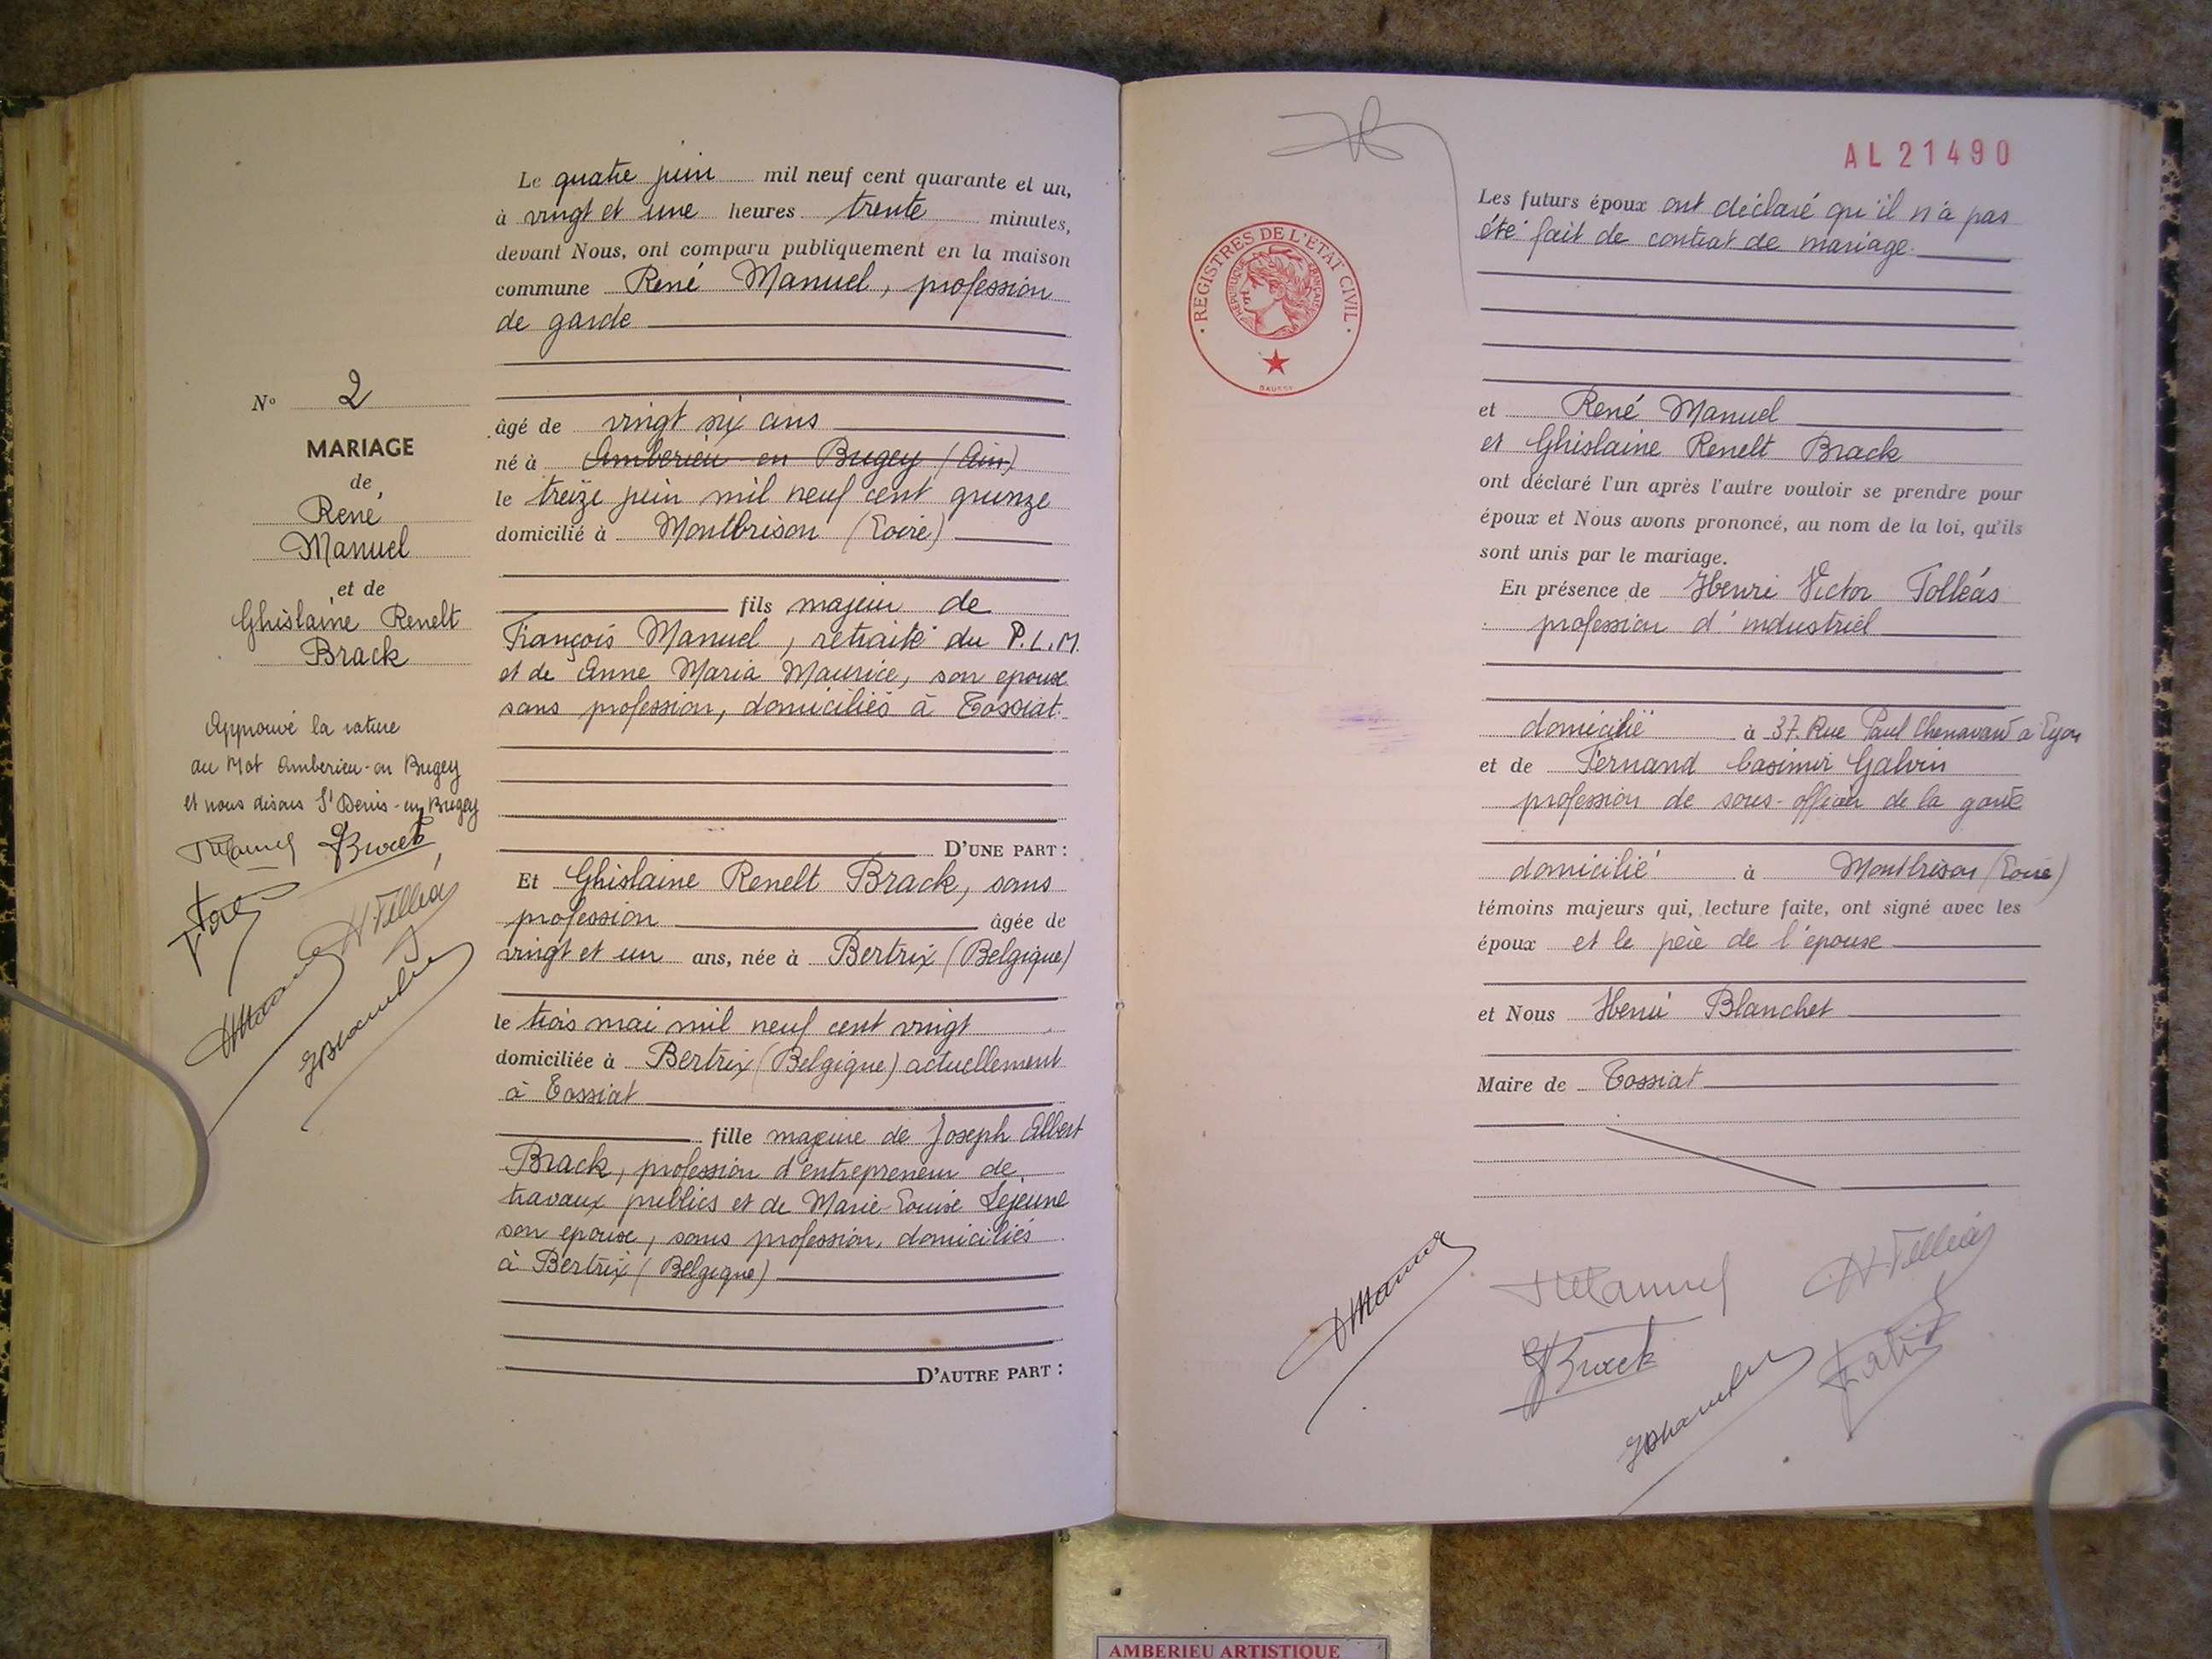 Le quatre juin mil neuf cent quarante et un,
à vingt et une heures trente minutes,
devant Nous, ont comparu publiquement en la maison
commune René Manuel, profession
de garde
âgé de vingt six ans
né à Amberieu en Bugey (Ain)
le treize juin mil neuf cent quinze
domicilié à Montbrison (Loire)
fils majeur de
François Manuel, retraité du P.L.M.
et de Anne Maria Maurice, son epouse
sans profession, domiciliés à Tossiat
D'UNE PART :
Et Ghislaine Renelt Brack, sans
profession âgée de
vingt et un ans, née à Bertrix (Belgique)
le trois mai mil neuf cent vingt
domiciliée à Bertrix (Belgique) actuellement
à Tossiat
fille majeure de Joseph Albert
Brack, profession d'entrepreneur de
travaux publics et de Marie-Louise Lejeune
son epouse, sans profession, domiciliés
à Bertrix (Belgique)
D'AUTRE PART :
No 2
MARIAGE
de
René
Manuel
et de
Ghislaine Renelt
Brack
Approuvé la rature
au mot Amberieu-en Bugey
et nous disons St Denis-en Bugey
Manuel GBrack
HTolléas
HBlanchet
AL 21490
REGISTRES DE L'ETAT CIVIL
REPUBLIQUE FRANÇAISE
Les futurs époux ont déclaré qu'il n'a pas
été fait de contrat de mariage.
et René Manuel
et Ghislaine Renelt Brack
ont déclaré l'un après l'autre vouloir se prendre pour
époux et Nous avons prononcé, au nom de la loi, qu'ils
sont unis par le mariage.
En présence de Henri Victor Tolléas
profession d'industriel
domicilié à 37. Rue Paul Chenavard à Lyon
et de Fernand Casimir Galvin
profession de sous-officier de la garde
domicilié à Montbrison (Loire)
témoins majeurs qui, lecture faite, ont signé avec les
époux et le père de l'epouse
et Nous Henri Blanchet
Maire de Tossiat
Manuel HTolléas
GBrack
HBlanchet
AMBERIEU ARTISTIQUE